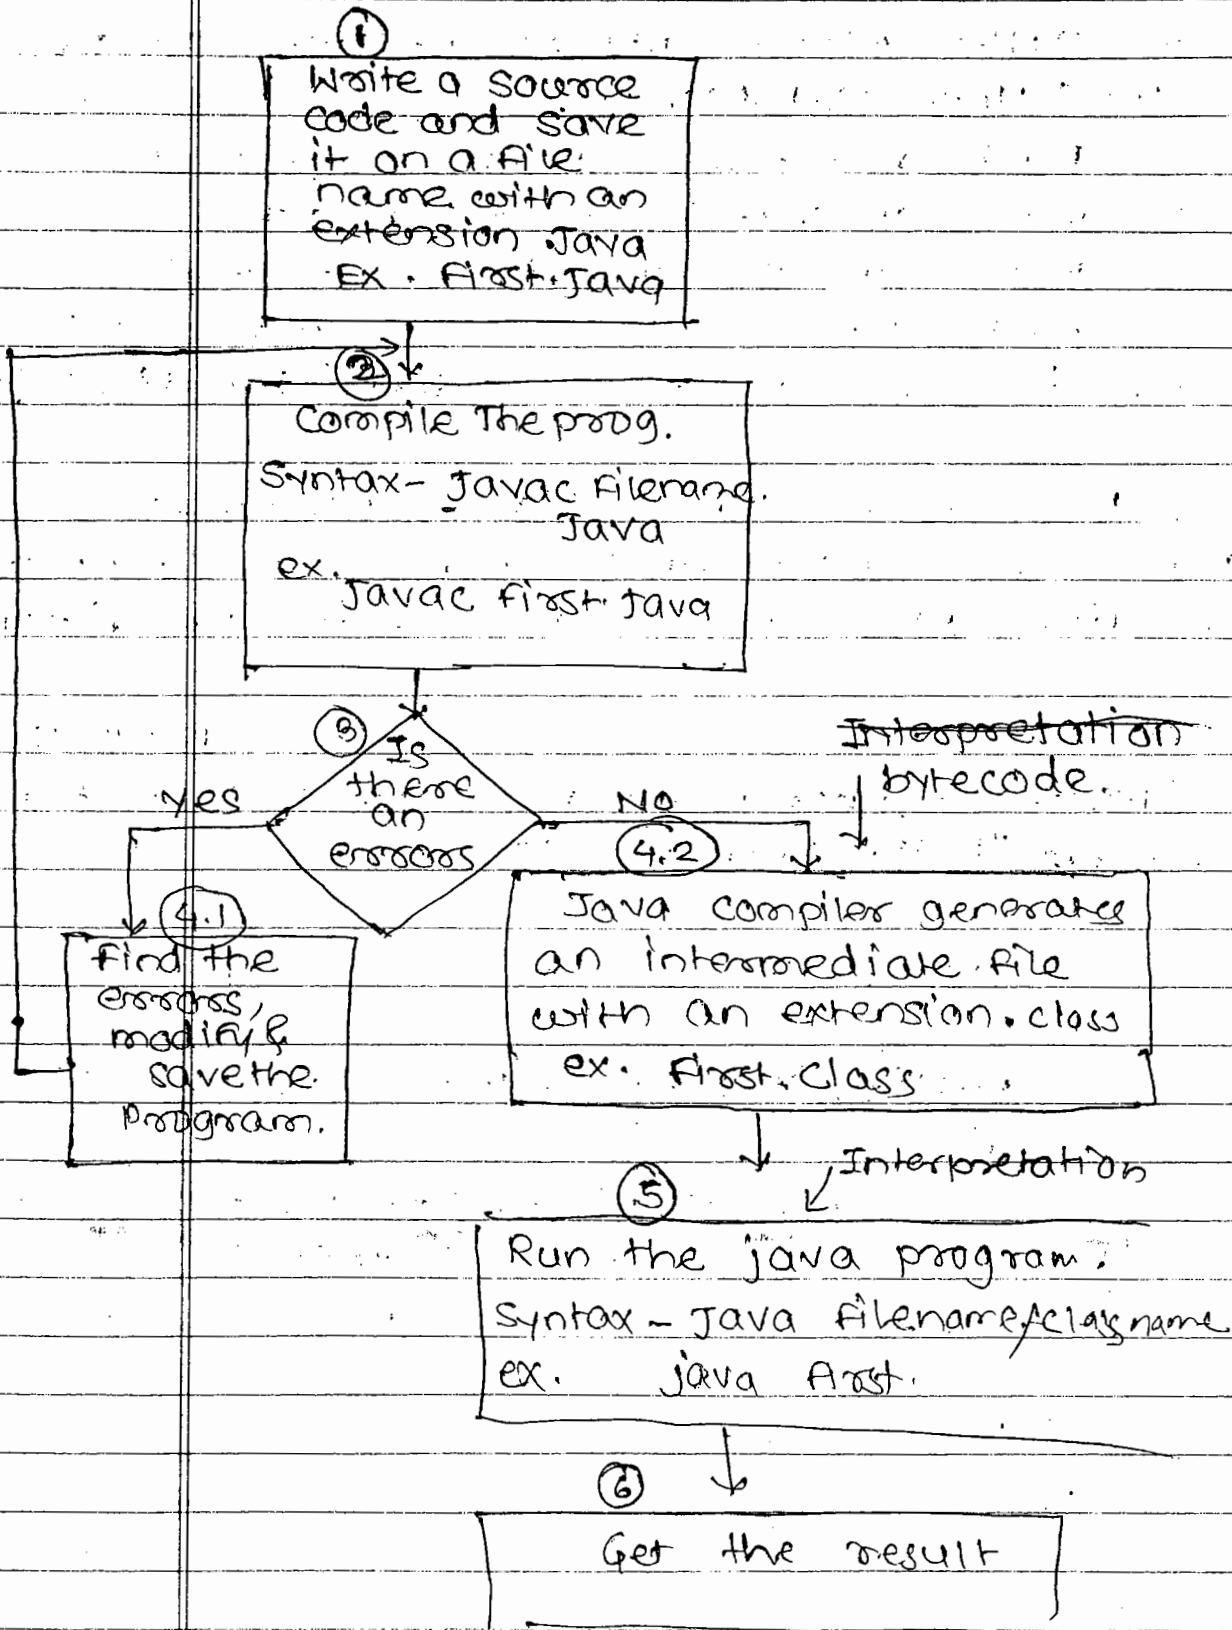 1
Write a source
code and save
it on a file
name with an
extension .Java
Ex. First.Java
2
Compile The prog.
Syntax- Javac Filename.
Java
ex.
Javac first.Java
3
Is
there
an
errors
Yes
No
Interpretation
bytecode.
4.1
Find the
errors,
modify &
save the
program.
4.2
Java compiler generates
an intermediate file
with an extension .class
ex. First.Class
Interpretation
5
Run the java program.
Syntax - Java filename/classname
ex. java first.
6
Get the result